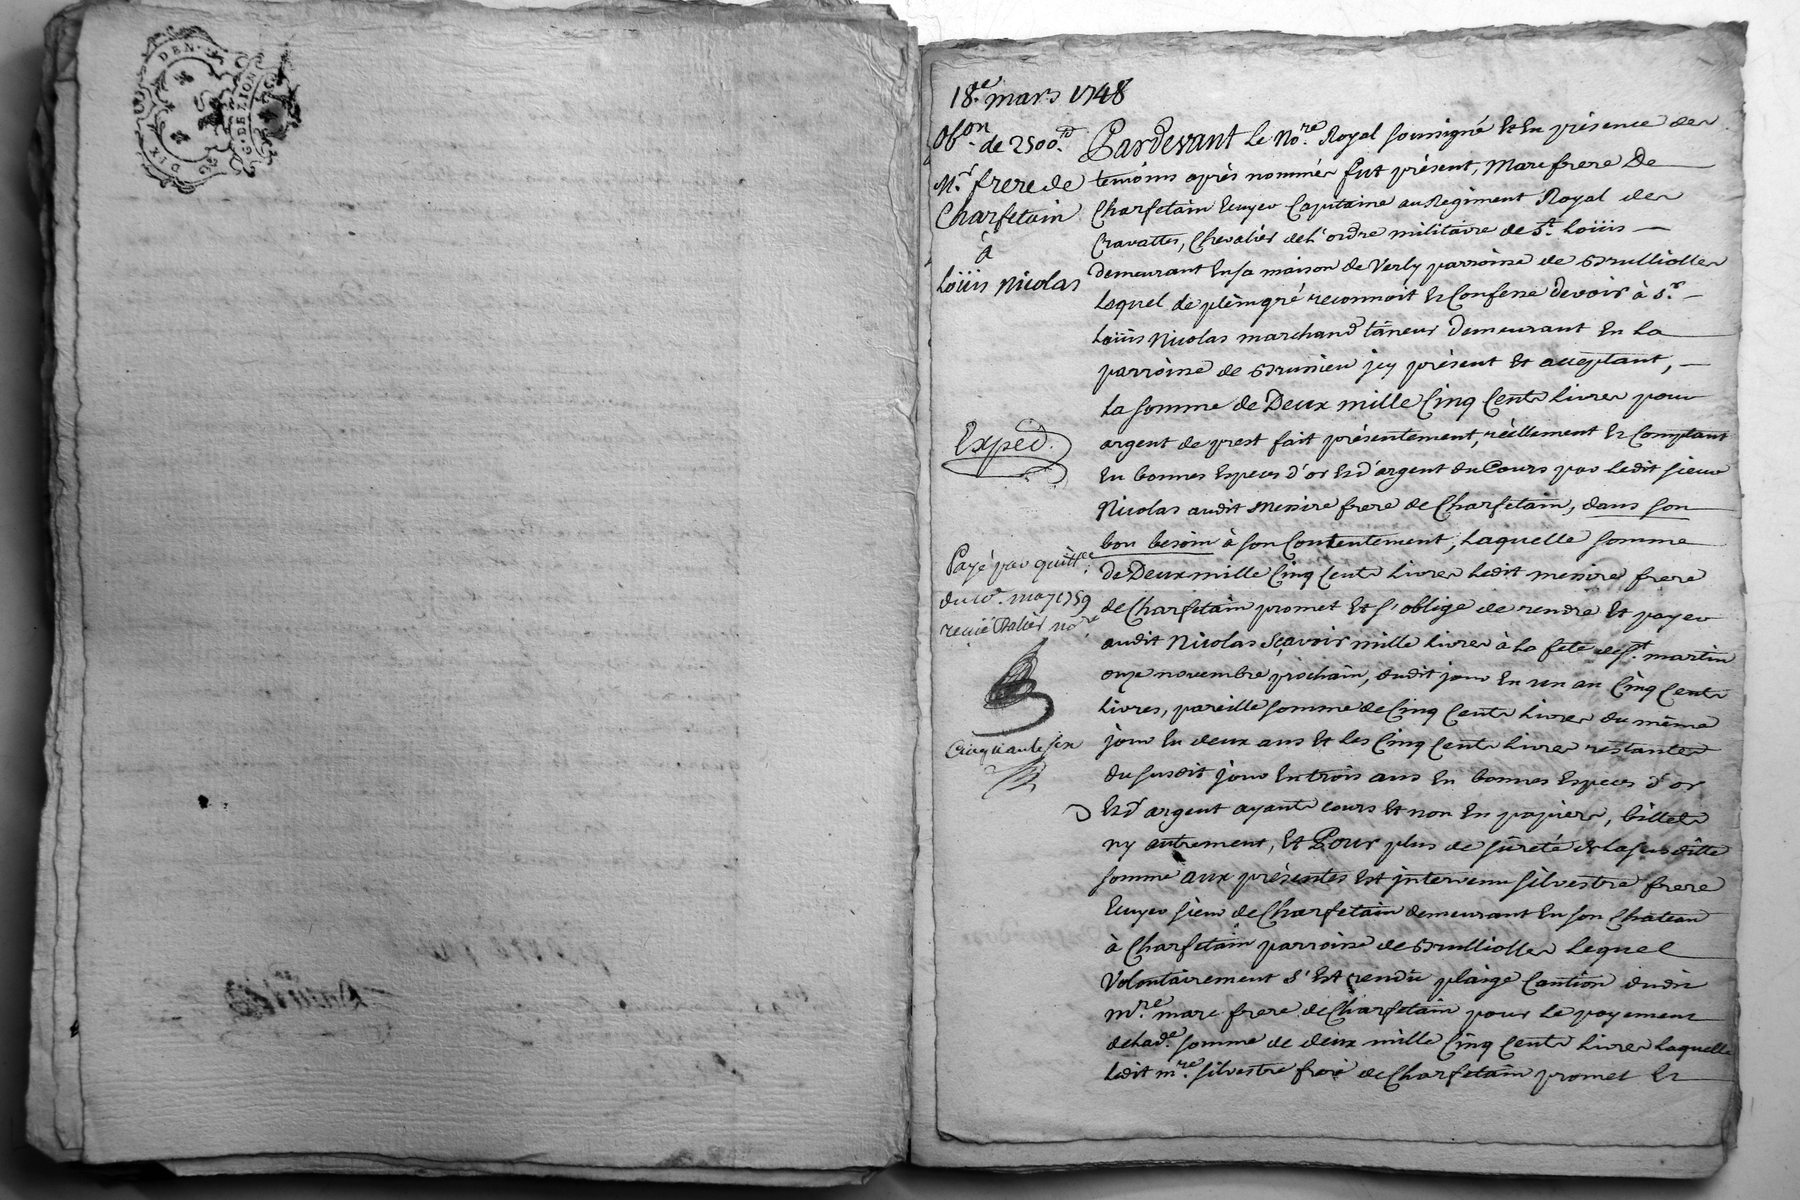 DIX DEN.
G. DE LION
18.e mars 1748
Ob.on de 2500.tt
M.r frere de
Charfetain
à
Loüis Nicolas
Exped.
Payé par quitt.ce
du 10.e may 1759
reçüe not.re
Cinquante six
Pardevant Le No.re Royal soussigné Et En présence des
temoins après nommés fut présent, Marc frere De
Charfetain Ecuyer Capitaine au Regiment Royal des
Cravattes, Chevalier de L'ordre militaire de S.t Loüis
demeurant En sa maison de Verly parroisse de Brulliolles
Lequel de pleingré reconnoit Et Confesse devoir à S.r
Loüis Nicolas marchand tâneur demeurant En La
parroisse de Brussieu jcy présent Et acceptant,
La somme de Deux mille Cinq Cents Livres pour
argent de prest fait présentement, réellement Et Comptant
En bonnes Especes d'or Et d'argent du Cours par Ledit sieur
Nicolas audit Messire frere de Charfetain, dans son
bon besoin à son Contentement, Laquelle somme
de Deux mille Cinq Cents Livres Ledit messire frere
de Charfetain promet Et s'oblige de rendre Et payer
audit Nicolas Sçavoir mille Livres à La fete de S.t martin
onze novembre prochain, dudit jour En un an Cinq Cents
Livres, pareille somme de Cinq Cents Livres du même
jour En deux ans Et Les Cinq Cents Livres restantes
du susdit jour En trois ans En bonnes Especes d'or
Et d'argent ayants cours Et non En papiers, billets
ny autrement, Et Pour plus de sûreté de La susditte
somme aux présentes Est jntervenu Silvestre frere
Ecuyer sieur de Charfetain demeurant En son Chateau
à Charfetain parroisse de Brulliolles Lequel
Volontairement s'Est rendu plaige Caution dudit
m.re marc frere de Charfetain pour Le payement
de Lad.e somme de deux mille Cinq Cents Livres Laquelle
Ledit m.re Silvestre frere de Charfetain promet Et